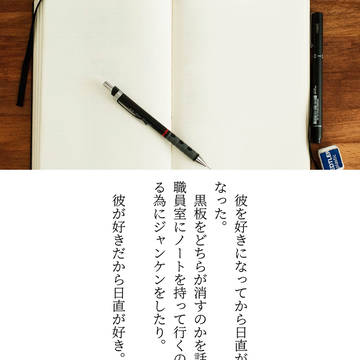 彼を好きになってから日直が
なった。
黒板をどちらが消すのかを話
職員室にノートを持って行くの
る為にジャンケンをしたり。
彼が好きだから日直が好き。
STAEDTLER